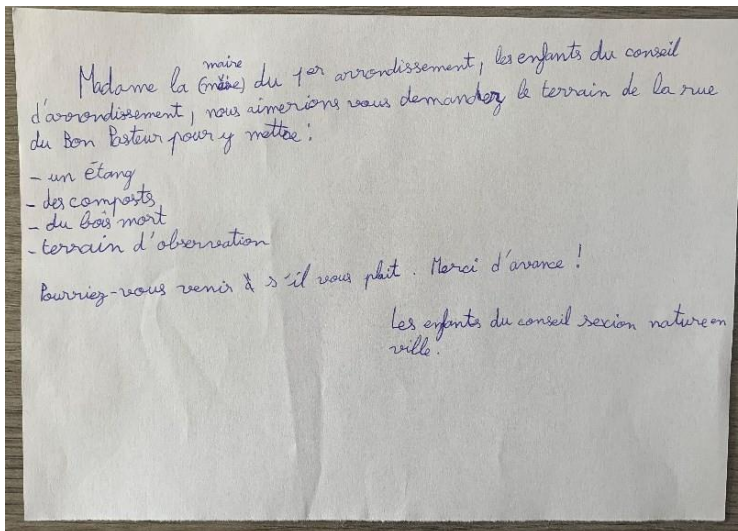 maire
Madame la (mère) du 1er arrondissement, les enfants du conseil
d'arrondissement, nous aimerions vous demander le terrain de la rue
du Bon Pasteur pour y mettre :
- un étang
- des composts
- du bois mort
- terrain d'observation
Pourriez-vous venir s'il vous plait. Merci d'avance !
Les enfants du conseil sexion nature en
ville.